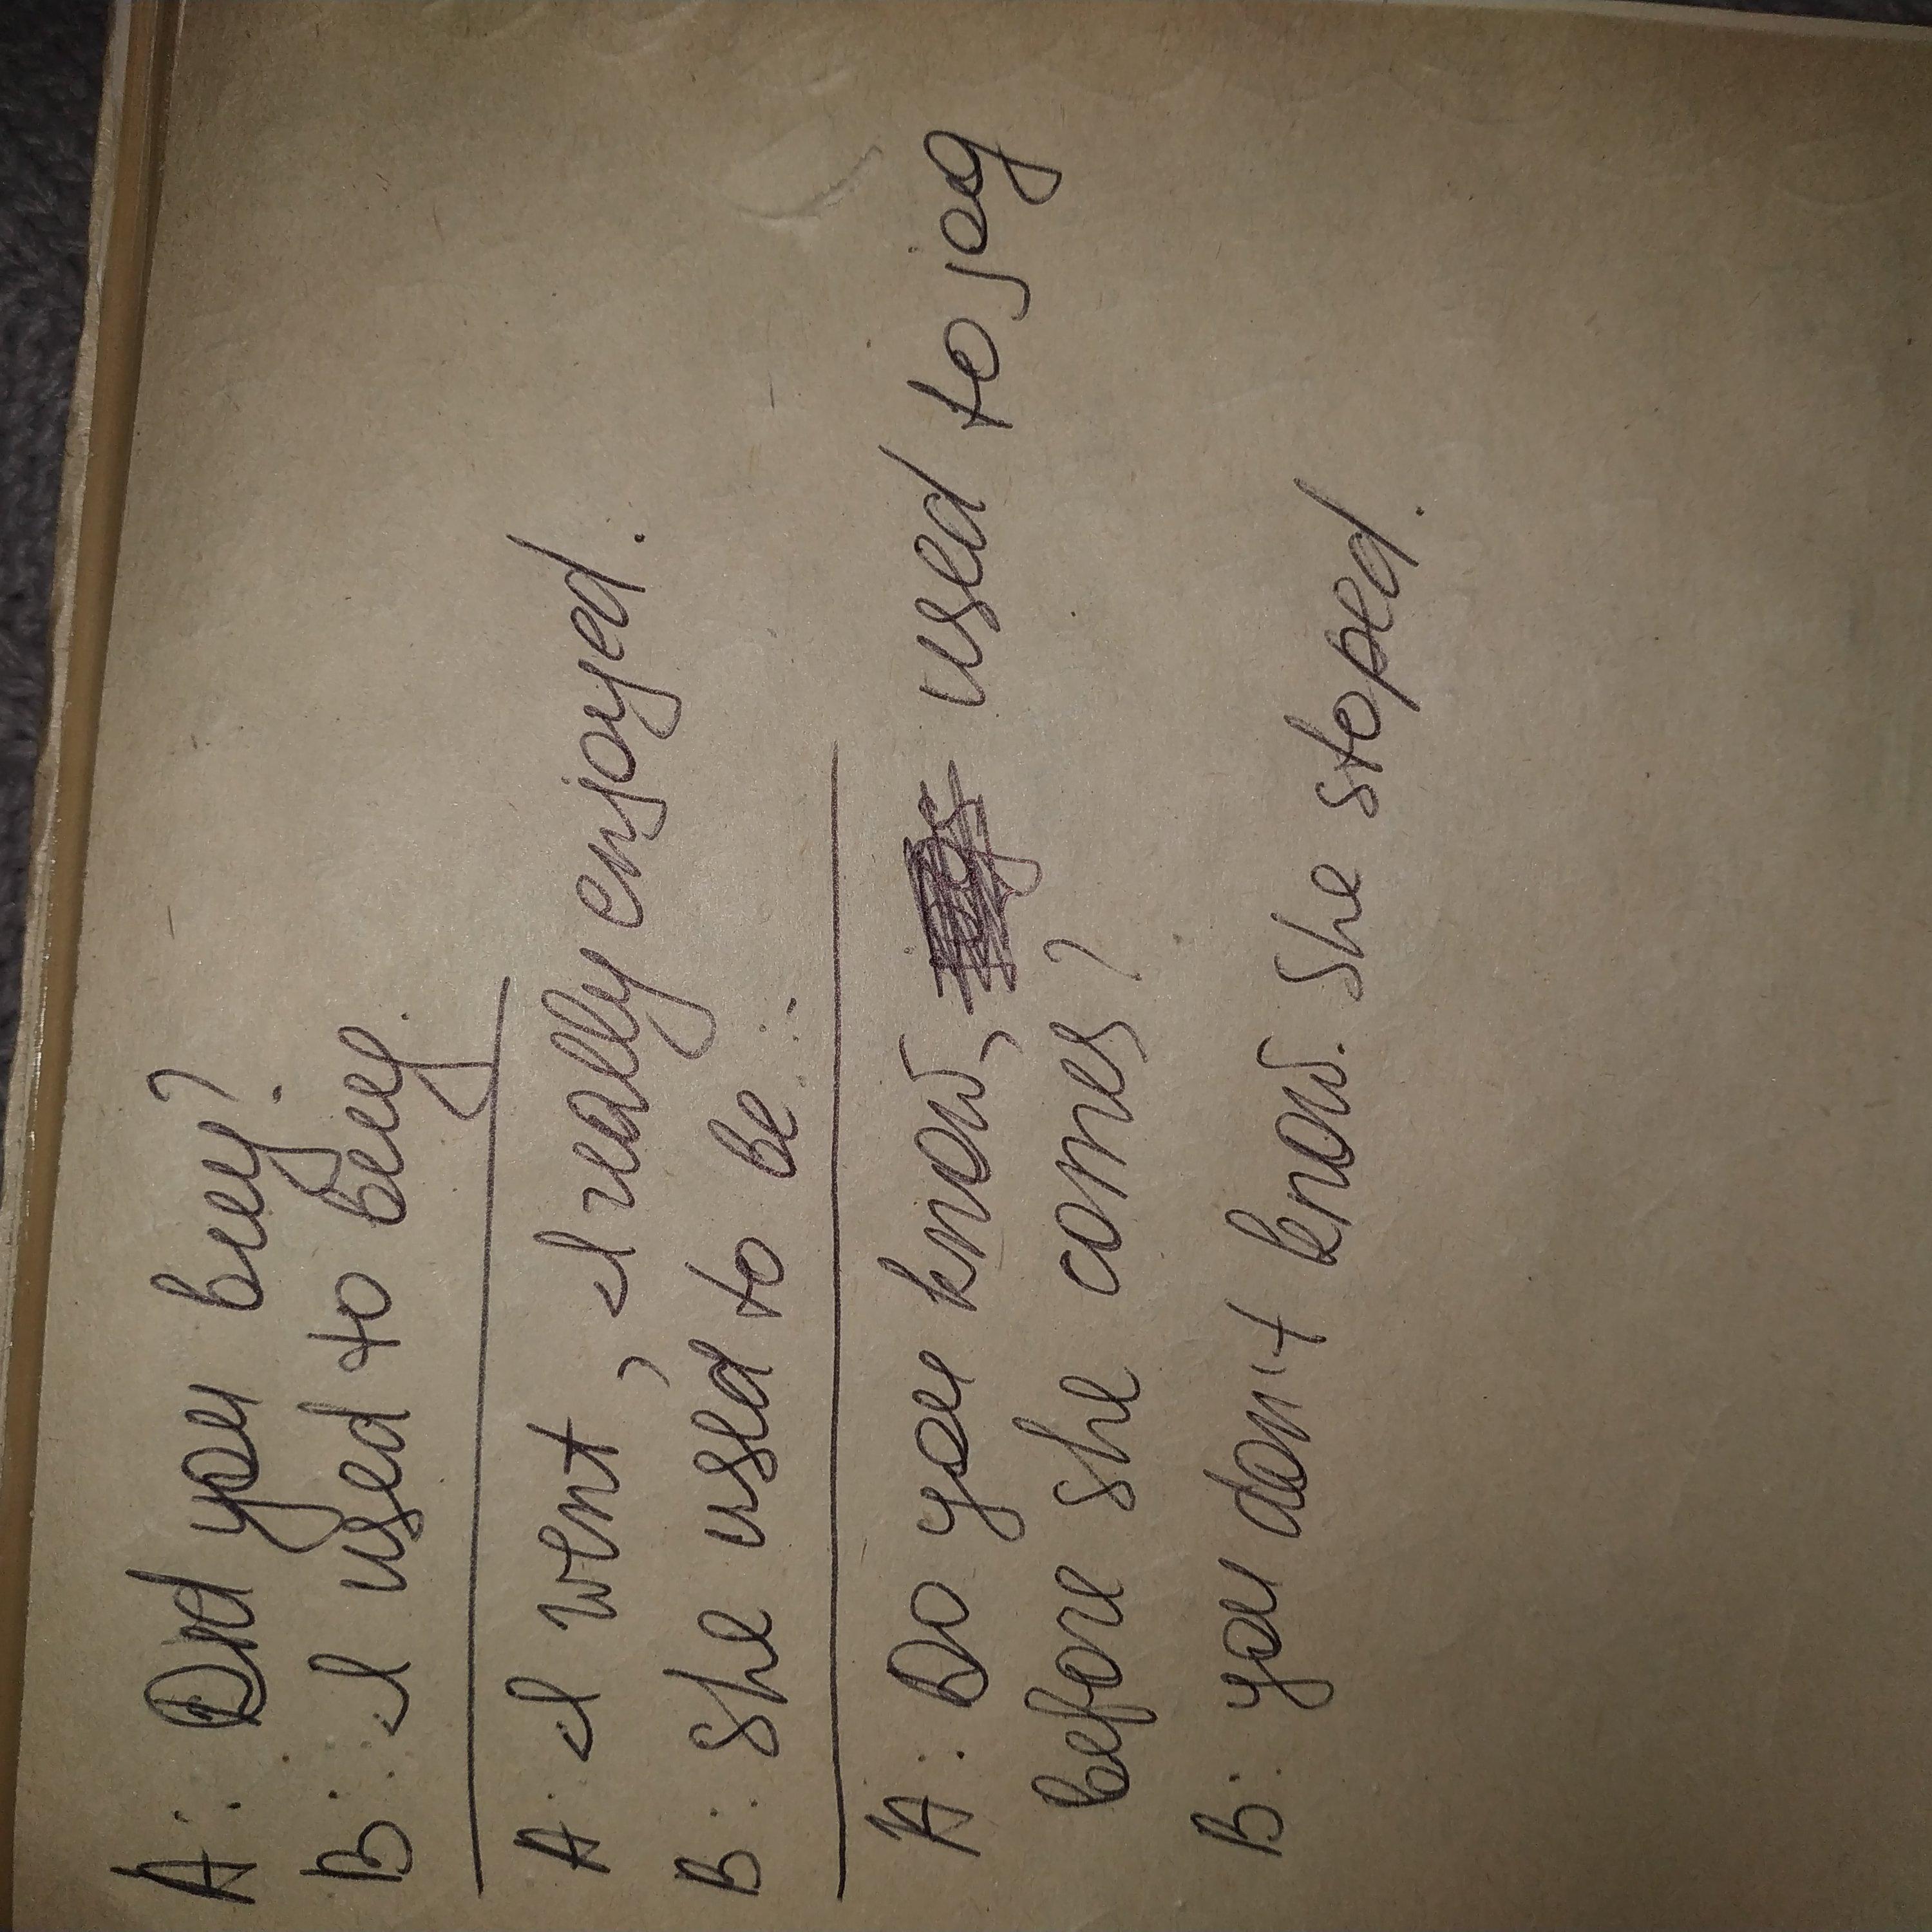 A: Did you buy?
B: I used to buy.
A: I went, I really enjoyed.
B: She used to be...
A: Do you know, used to jog
before she comes?
B: you don't know. She stoped.